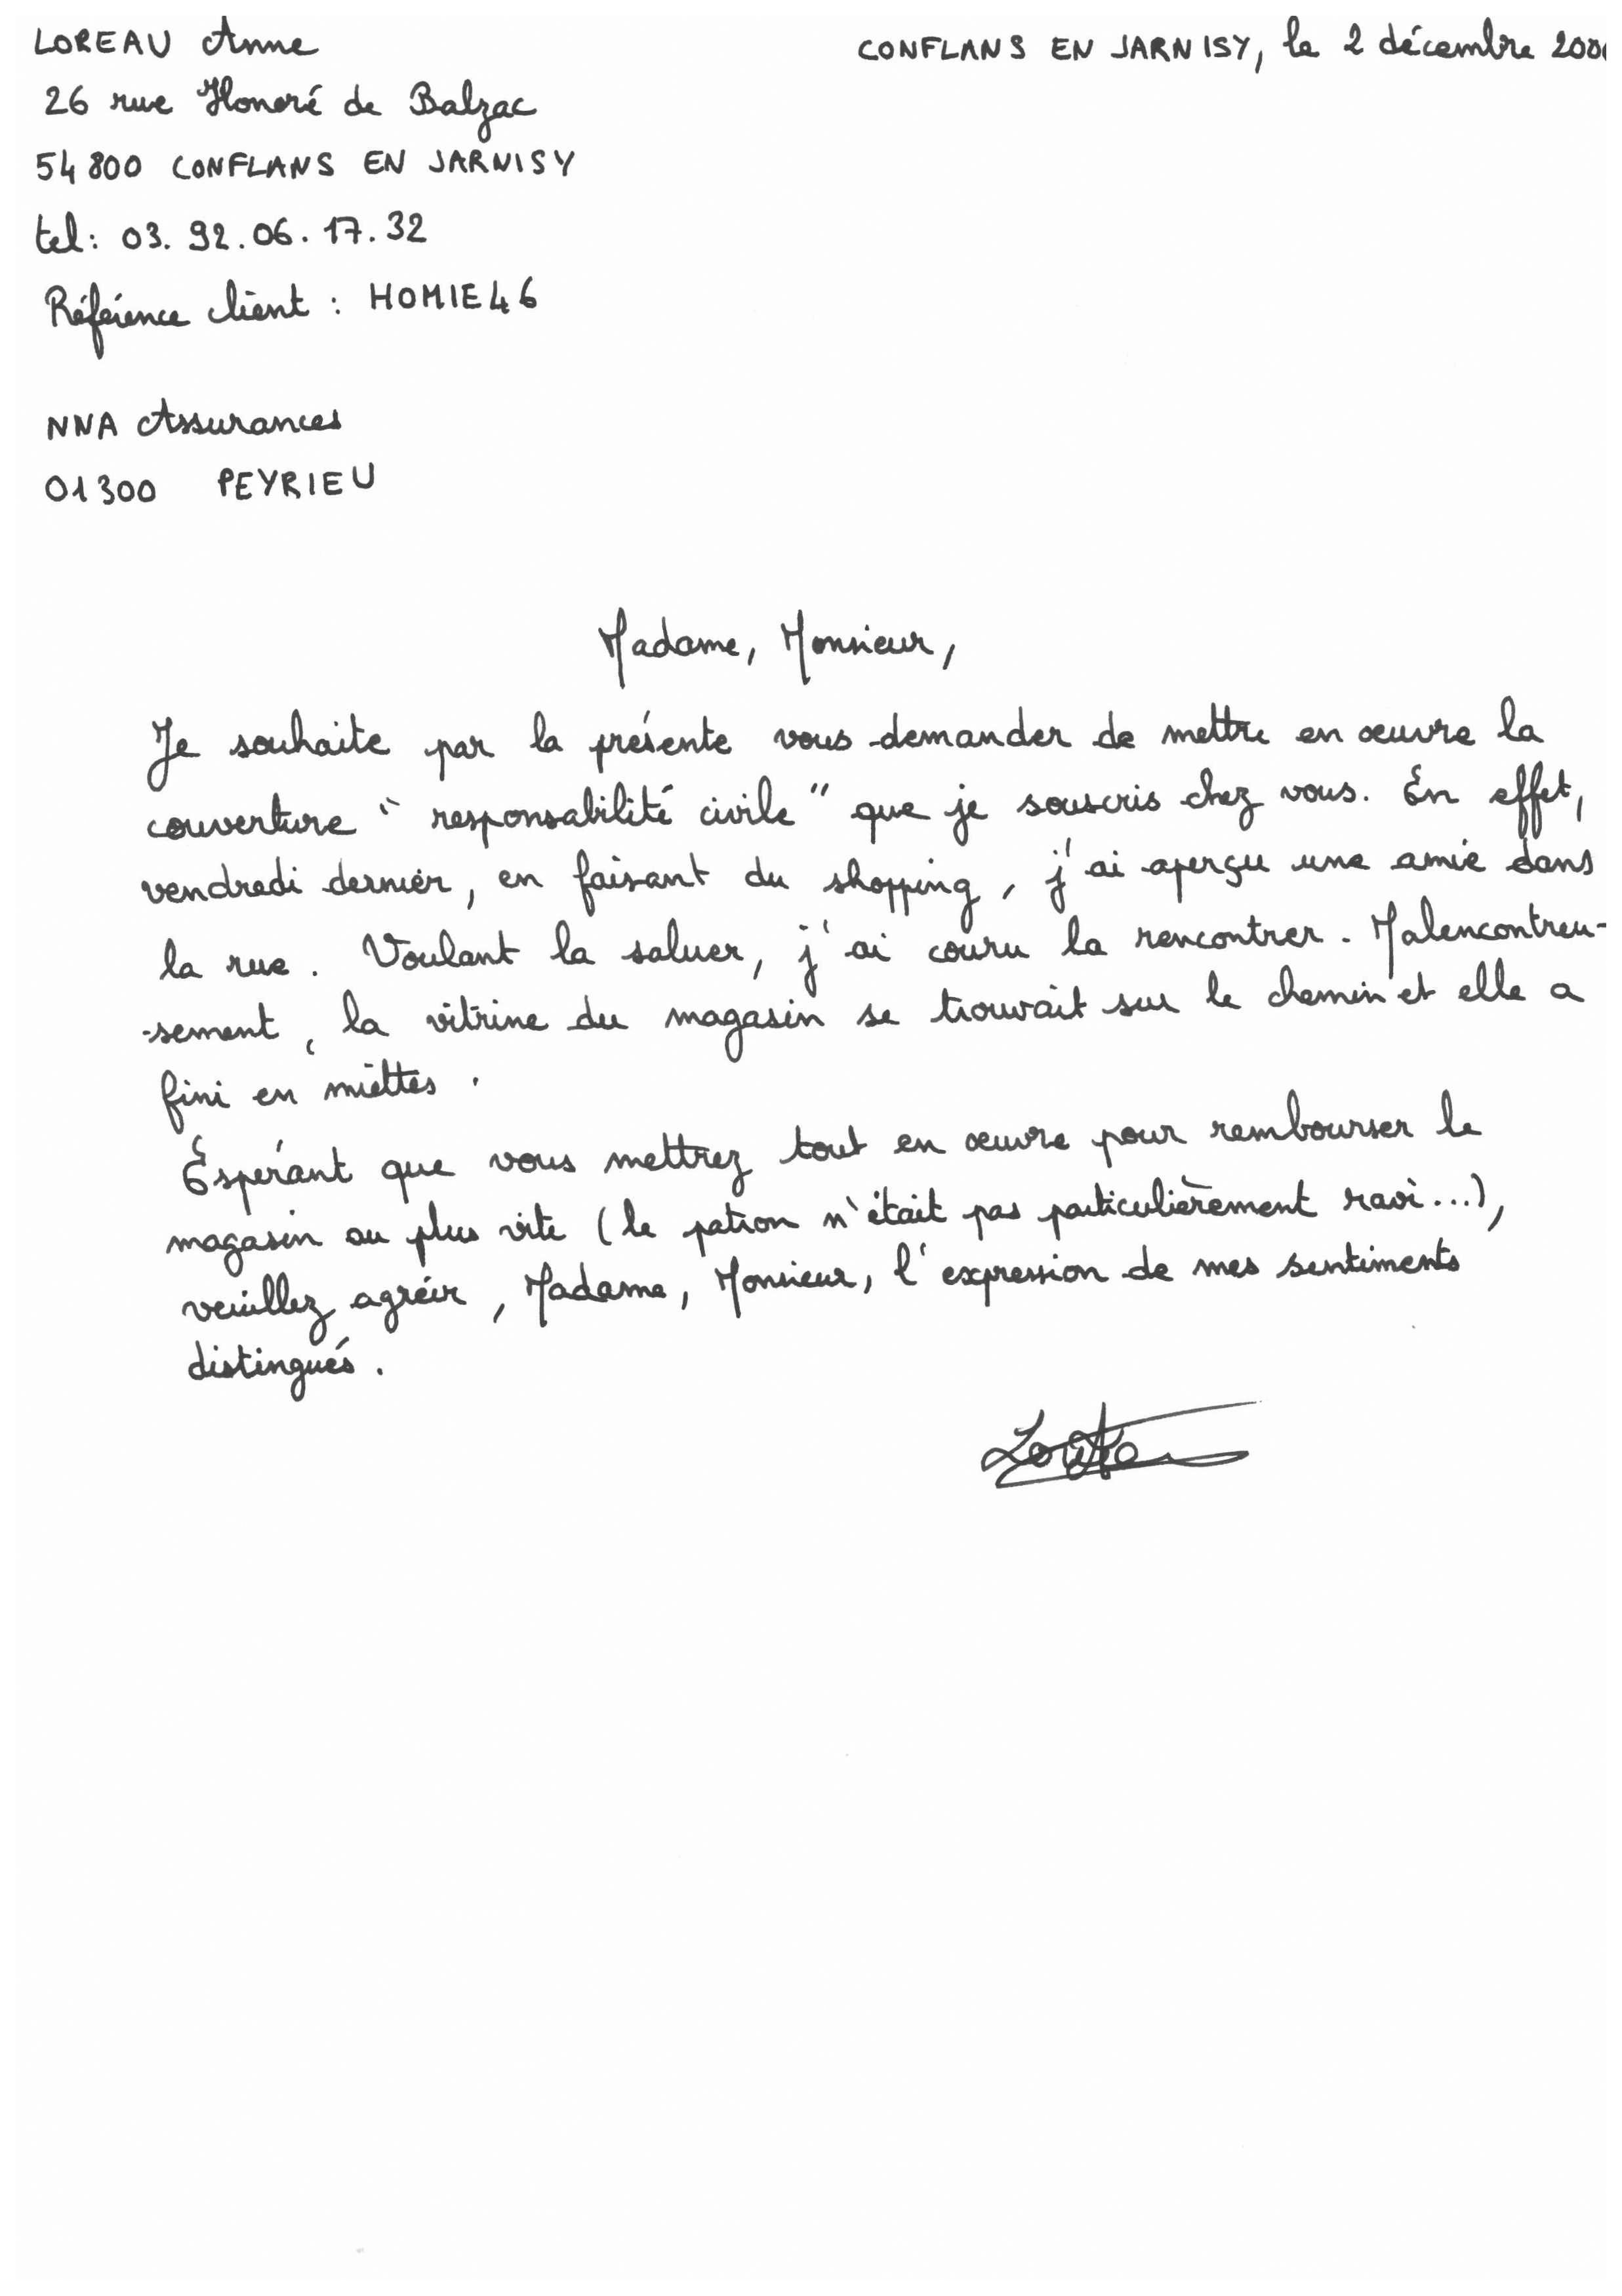 LOREAU Anne
CONFLANS EN JARNISY, le 2 décembre
26 rue Honoré de Balzac
54800 CONFLANS EN JARNISY
tel: 03.92.06.17.32
Référence client : HOMIE46
NNA Assurances
01300 PEYRIEU
Madame, Monsieur,
Je souhaite par la présente vous demander de mettre en œuvre la
couverture "responsabilité civile" que je souscris chez vous. En effet,
vendredi dernier, en faisant du shopping, j'ai aperçu une amie dans
la rue. Voulant la saluer, j'ai couru la rencontrer. Malencontreu-
-sement, la vitrine du magasin se trouvait sur le chemin et elle a
fini en miettes.
Espérant que vous mettrez tout en œuvre pour rembourser le
magasin au plus vite (le patron n'était pas particulièrement ravi...),
veuillez agréer, Madame, Monsieur, l'expression de mes sentiments
distingués.